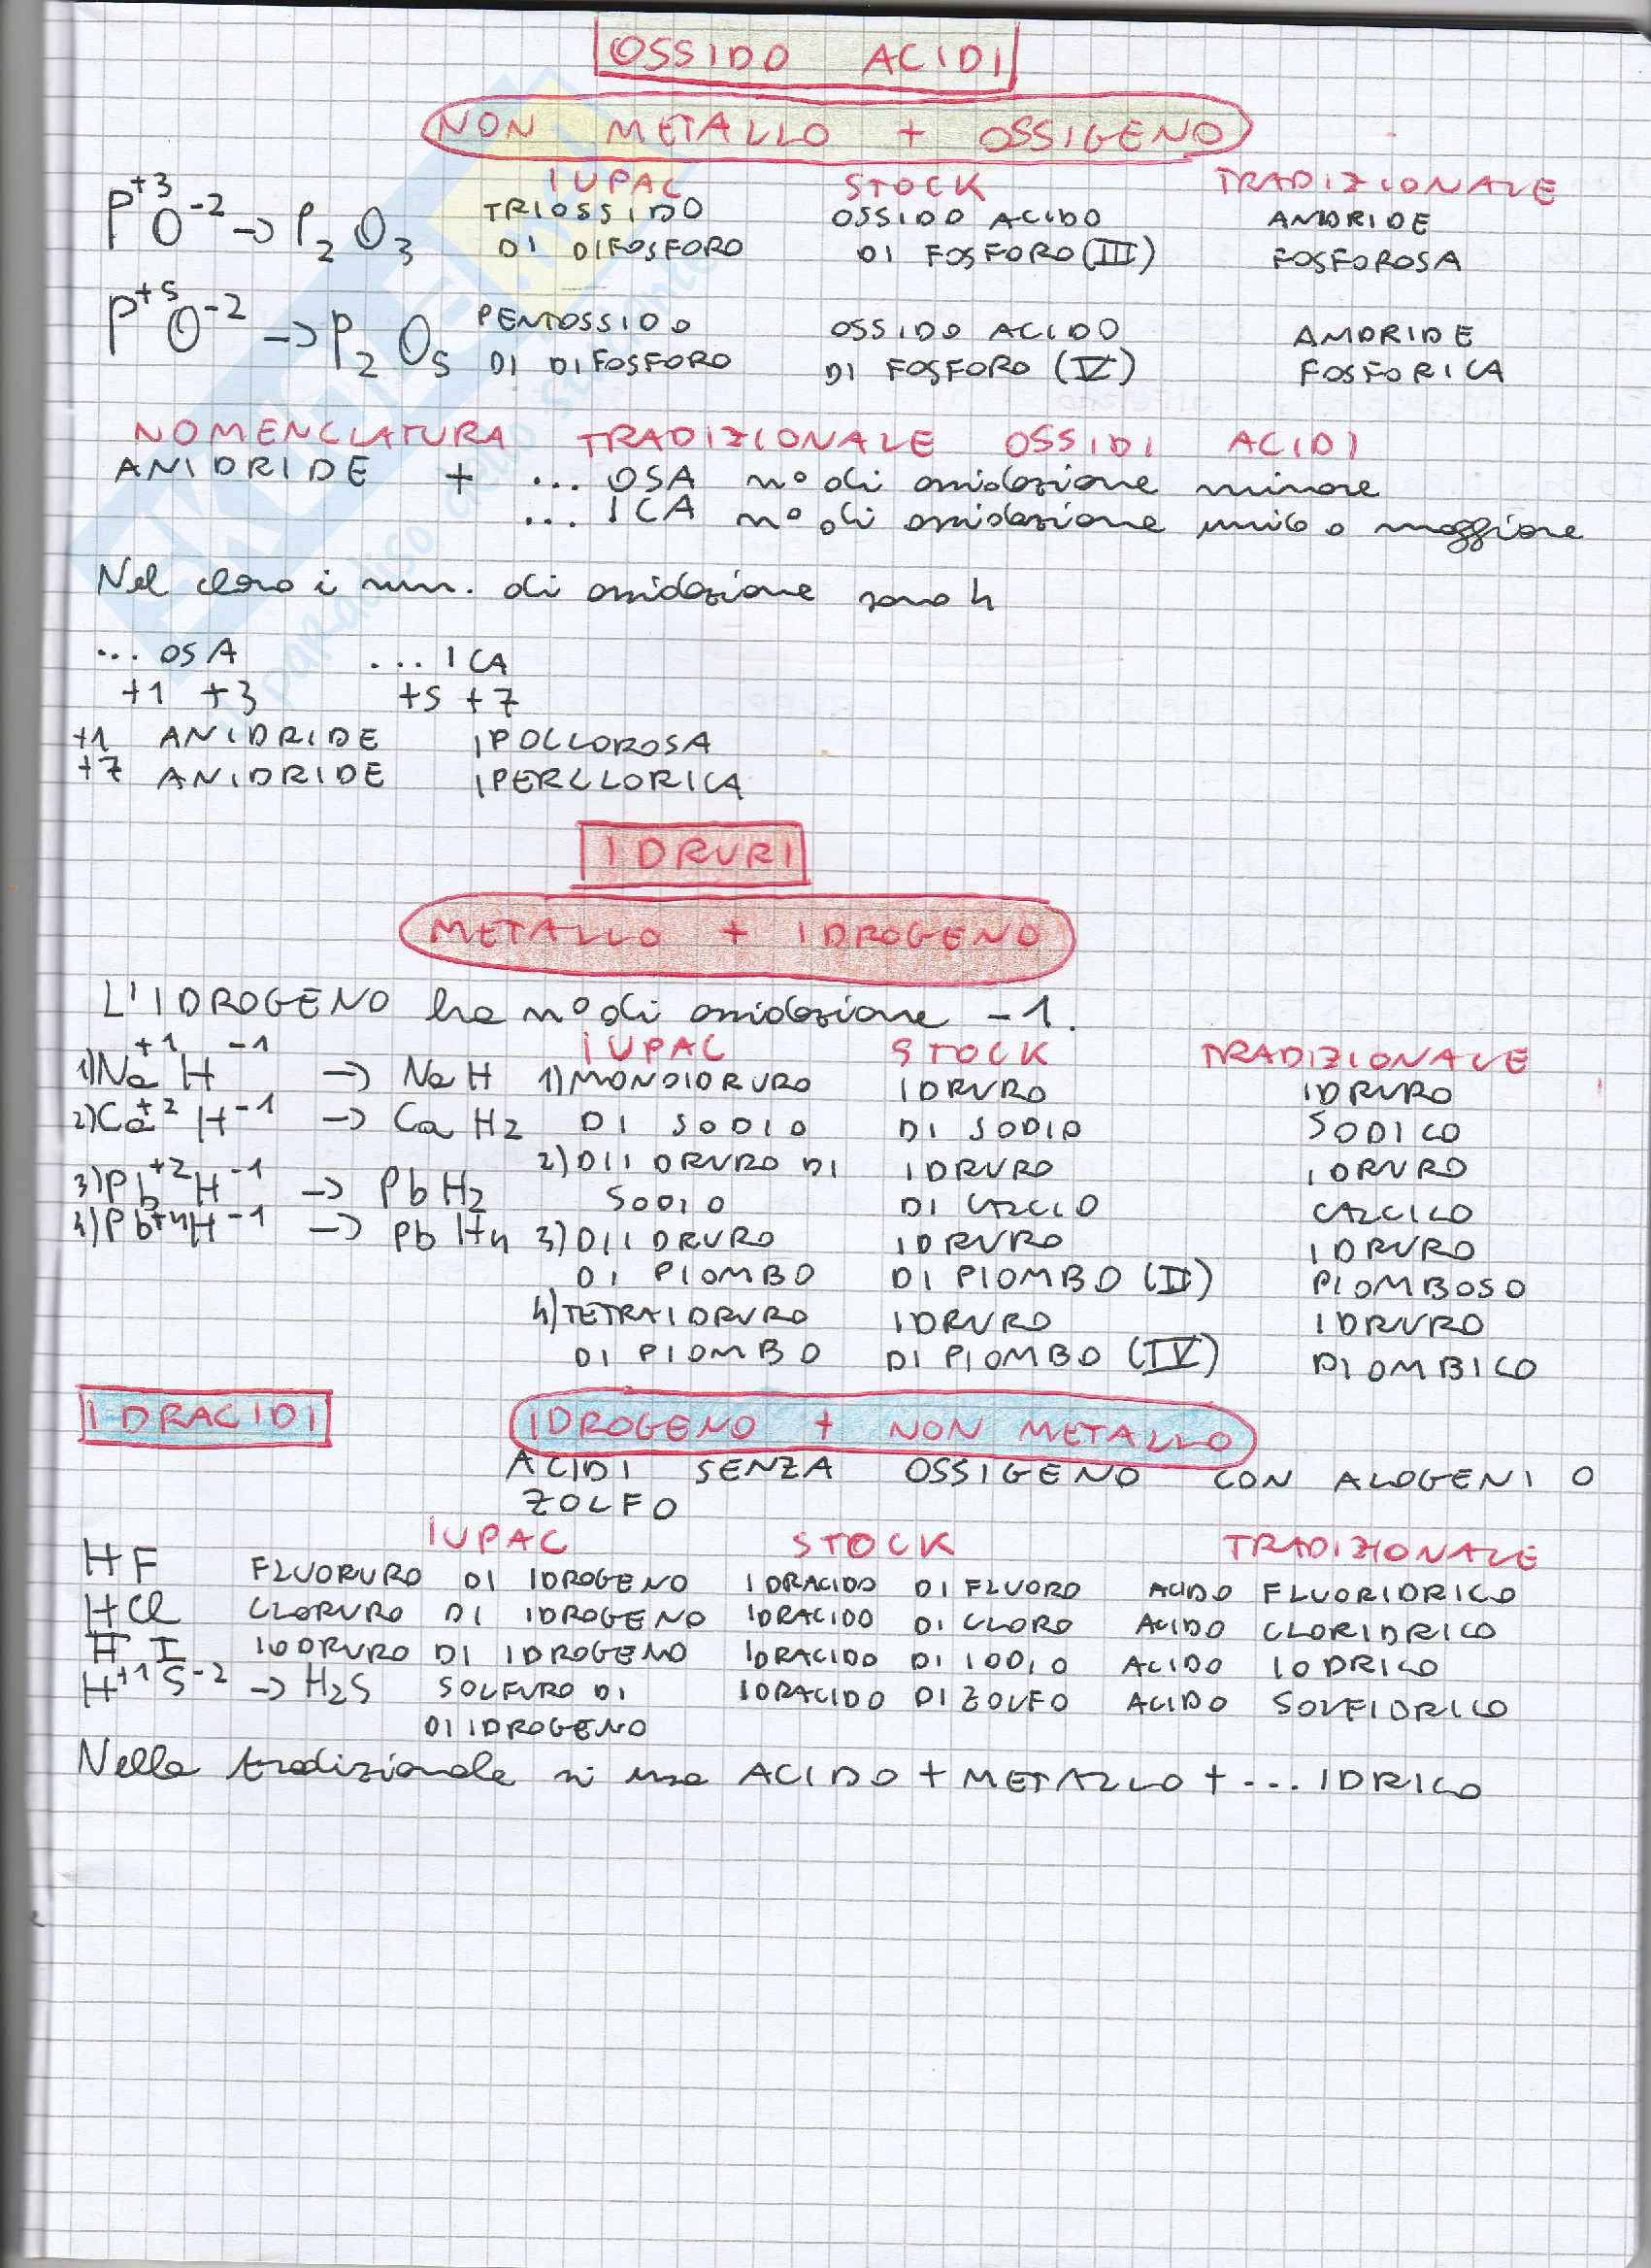 OSSIDO ACIDI
NON METALLO + OSSIGENO
IUPAC STOCK TRADIZIONALE
P+3 O-2 → P2O3 TRIOSSIDO DI DIFOSFORO OSSIDO ACIDO DI FOSFORO (III) ANIDRIDE FOSFOROSA
P+5 O-2 → P2O5 PENTOSSIDO DI DIFOSFORO OSSIDO ACIDO DI FOSFORO (V) ANIDRIDE FOSFORICA
NOMENCLATURA TRADIZIONALE OSSIDI ACIDI
ANIDRIDE + ... OSA n° di ossidazione minore
... ICA n° di ossidazione unico o maggiore
Nel cloro i num. di ossidazione sono 4
... OSA ... ICA
+1 +3 +5 +7
+1 ANIDRIDE IPOCLOROSA
+7 ANIDRIDE IPERCLORICA
IDRURI
METALLO + IDROGENO
L'IDROGENO ha n° di ossidazione -1.
IUPAC STOCK TRADIZIONALE
1)Na+1 H-1 → NaH 1)MONOIDRURO IDRURO IDRURO
2)Ca+2 H-1 → CaH2 DI SODIO DI SODIO SODICO
2)DIIDRURO DI IDRURO IDRURO
3)Pb+2 H-1 → PbH2 SODIO DI CALCIO CALCICO
4)Pb+4H-1 → PbH4 3)DIIDRURO IDRURO IDRURO
DI PIOMBO DI PIOMBO (II) PIOMBOSO
4)TETRAIDRURO IDRURO IDRURO
DI PIOMBO DI PIOMBO (IV) PIOMBICO
IDRACIDI IDROGENO + NON METALLO
ACIDI SENZA OSSIGENO CON ALOGENI O
ZOLFO
IUPAC STOCK TRADIZIONALE
HF FLUORURO DI IDROGENO IDRACIDO DI FLUORO ACIDO FLUORIDRICO
HCl CLORURO DI IDROGENO IDRACIDO DI CLORO ACIDO CLORIDRICO
HI IODRURO DI IDROGENO IDRACIDO DI IODIO ACIDO IODRICO
H+1 S-2 → H2S SOLFURO DI IDRACIDO DI ZOLFO ACIDO SOLFIDRICO
DI IDROGENO
Nella tradizionale si usa ACIDO + METALLO + ... IDRICO